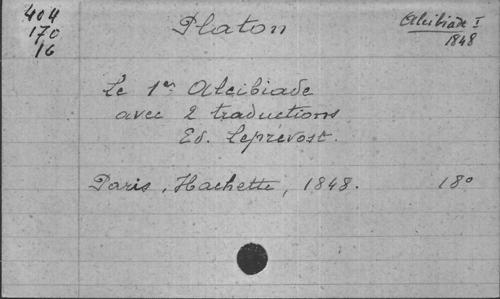 404
170
16
Platon
Alcibiade I
1848
Le 1er Alcibiade
avec 2 traductions
Ed. Leprévost.
Paris, Hachette, 1848. 18º